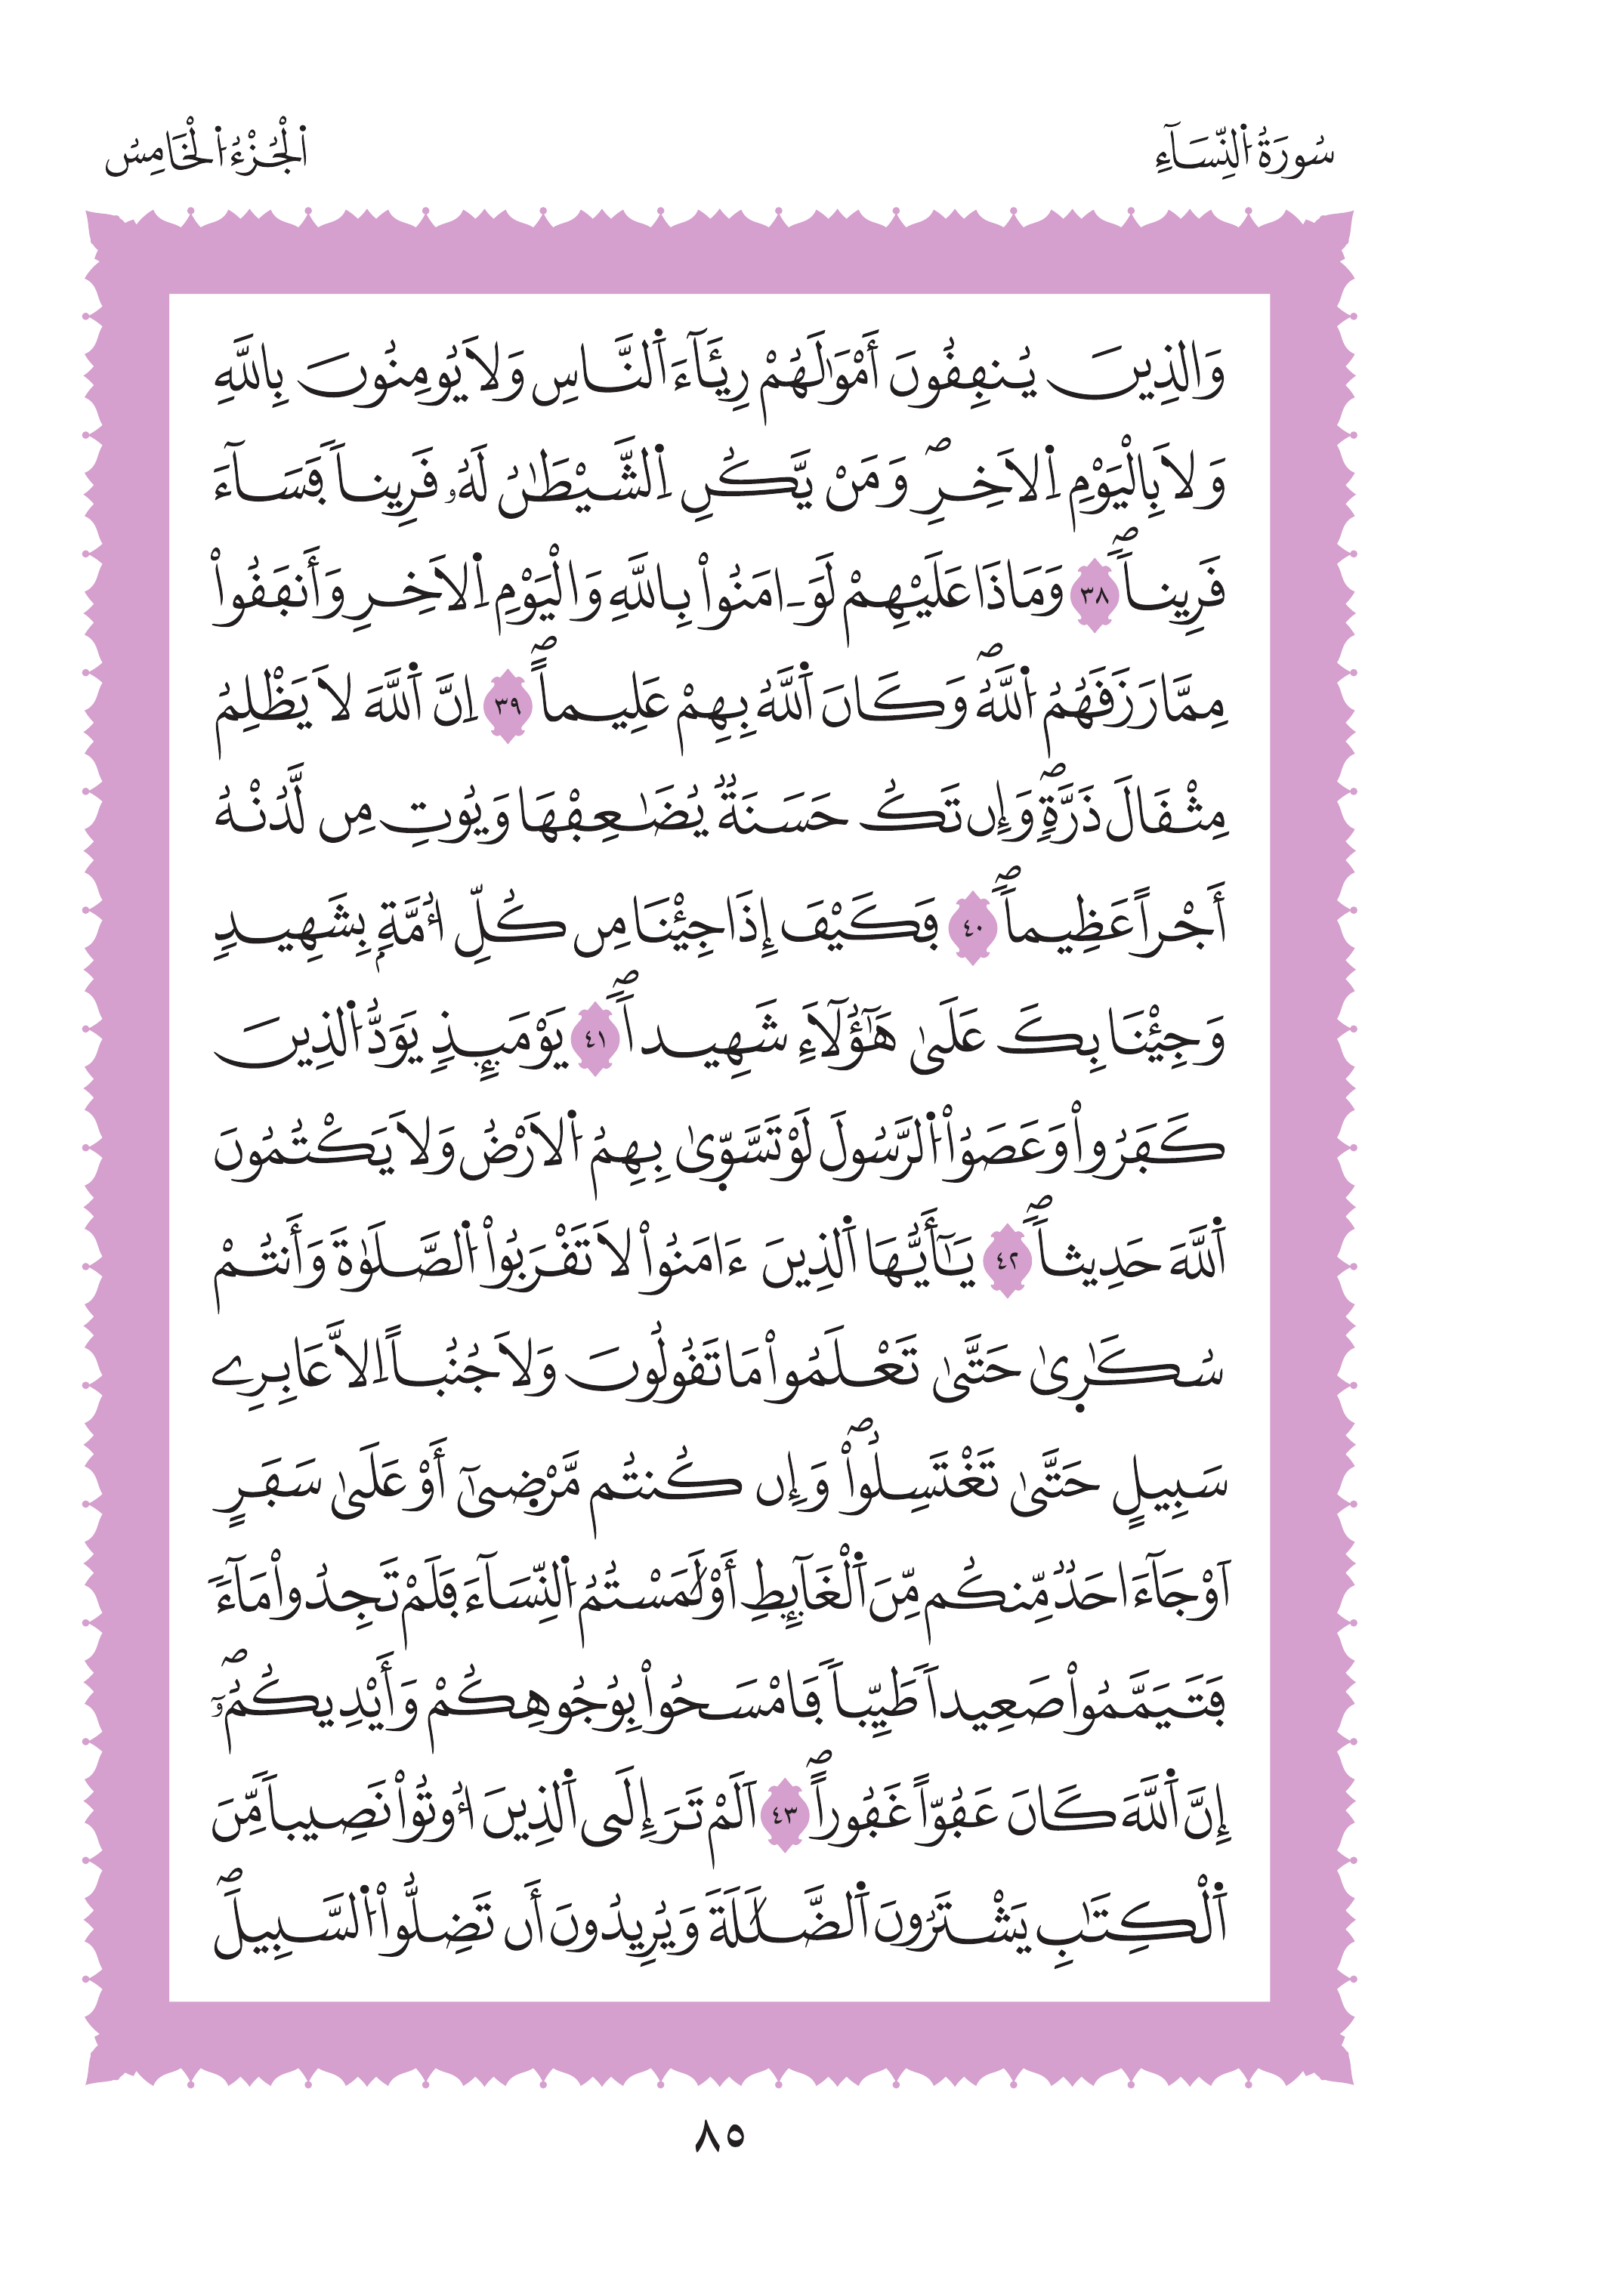 سُورَةُ اُ۬لنِّسَآءِ
اُ۬لْجُزْءُ اُ۬لْخَامِسُ
وَالذِينَ يُنفِقُونَ أَمْوَٰلَهُمْ رِئَآءَ اَ۬لنَّاسِ وَلَا يُومِنُونَ بِاللَّهِ
وَلَا بِالْيَوْمِ اِ۬لَاخِرِۖ وَمَنْ يَّكُنِ اِ۬لشَّيْطَٰنُ لَهُۥ قَرِيناٗ فَسَآءَ
قَرِيناٗۖ ٣٨ وَمَاذَا عَلَيْهِمْ لَوَ ـ امَنُواْ بِاللَّهِ وَالْيَوْمِ اِ۬لَاخِرِ وَأَنفَقُواْ
مِمَّا رَزَقَهُمُ اُ۬للَّهُۖ وَكَانَ اَ۬للَّهُ بِهِمْ عَلِيماًۖ ٣٩ اِنَّ اَ۬للَّهَ لَا يَظْلِمُ
مِثْقَالَ ذَرَّةٖۖ وَإِن تَكُ حَسَنَةٞ يُضَٰعِفْهَا وَيُوتِ مِن لَّدُنْهُ
أَجْراً عَظِيماٗۖ ٤٠ فَكَيْفَ إِذَا جِئْنَا مِن كُلِّ أُمَّةِۢ بِشَهِيدٖ
وَجِئْنَا بِكَ عَلَىٰ هَٰٓؤُلَآءِ شَهِيداٗۖ ٤١ يَوْمَئِذٖ يَوَدُّ اُ۬لذِينَ
كَفَرُواْ وَعَصَوُاْ اُ۬لرَّسُولَ لَوْ تَسَّوّ۪ىٰ بِهِمُ اُ۬لَارْضُ وَلَا يَكْتُمُونَ
اَ۬للَّهَ حَدِيثاٗۖ ٤٢ يَٰٓأَيُّهَا اَ۬لذِينَ ءَامَنُواْ لَا تَقْرَبُواْ اُ۬لصَّلَوٰةَ وَأَنتُمْ
سُكَٰر۪ىٰ حَتَّىٰ تَعْلَمُواْ مَا تَقُولُونَ وَلَا جُنُباً اِلَّا عَابِرِے
سَبِيلٍ حَتَّىٰ تَغْتَسِلُواْۖ وَإِن كُنتُم مَّرْض۪ىٰٓ أَوْ عَلَىٰ سَفَرٍ
اَوْ جَآءَ احَدٞ مِّنكُم مِّنَ اَ۬لْغَآئِطِ أَوْ لَٰمَسْتُمُ اُ۬لنِّسَآءَ فَلَمْ تَجِدُواْ مَآءٗ
فَتَيَمَّمُواْ صَعِيداٗ طَيِّباٗ فَامْسَحُواْ بِوُجُوهِكُمْ وَأَيْدِيكُمُۥٓۖ
إِنَّ اَ۬للَّهَ كَانَ عَفُوّاً غَفُوراًۖ ٤٣ اَلَمْ تَرَ إِلَى اَ۬لذِينَ أُوتُواْ نَصِيباٗ مِّنَ
اَ۬لْكِتَٰبِ يَشْتَرُونَ اَ۬لضَّلَٰلَةَ وَيُرِيدُونَ أَن تَضِلُّواْ اُ۬لسَّبِيلَۖ
٨٥